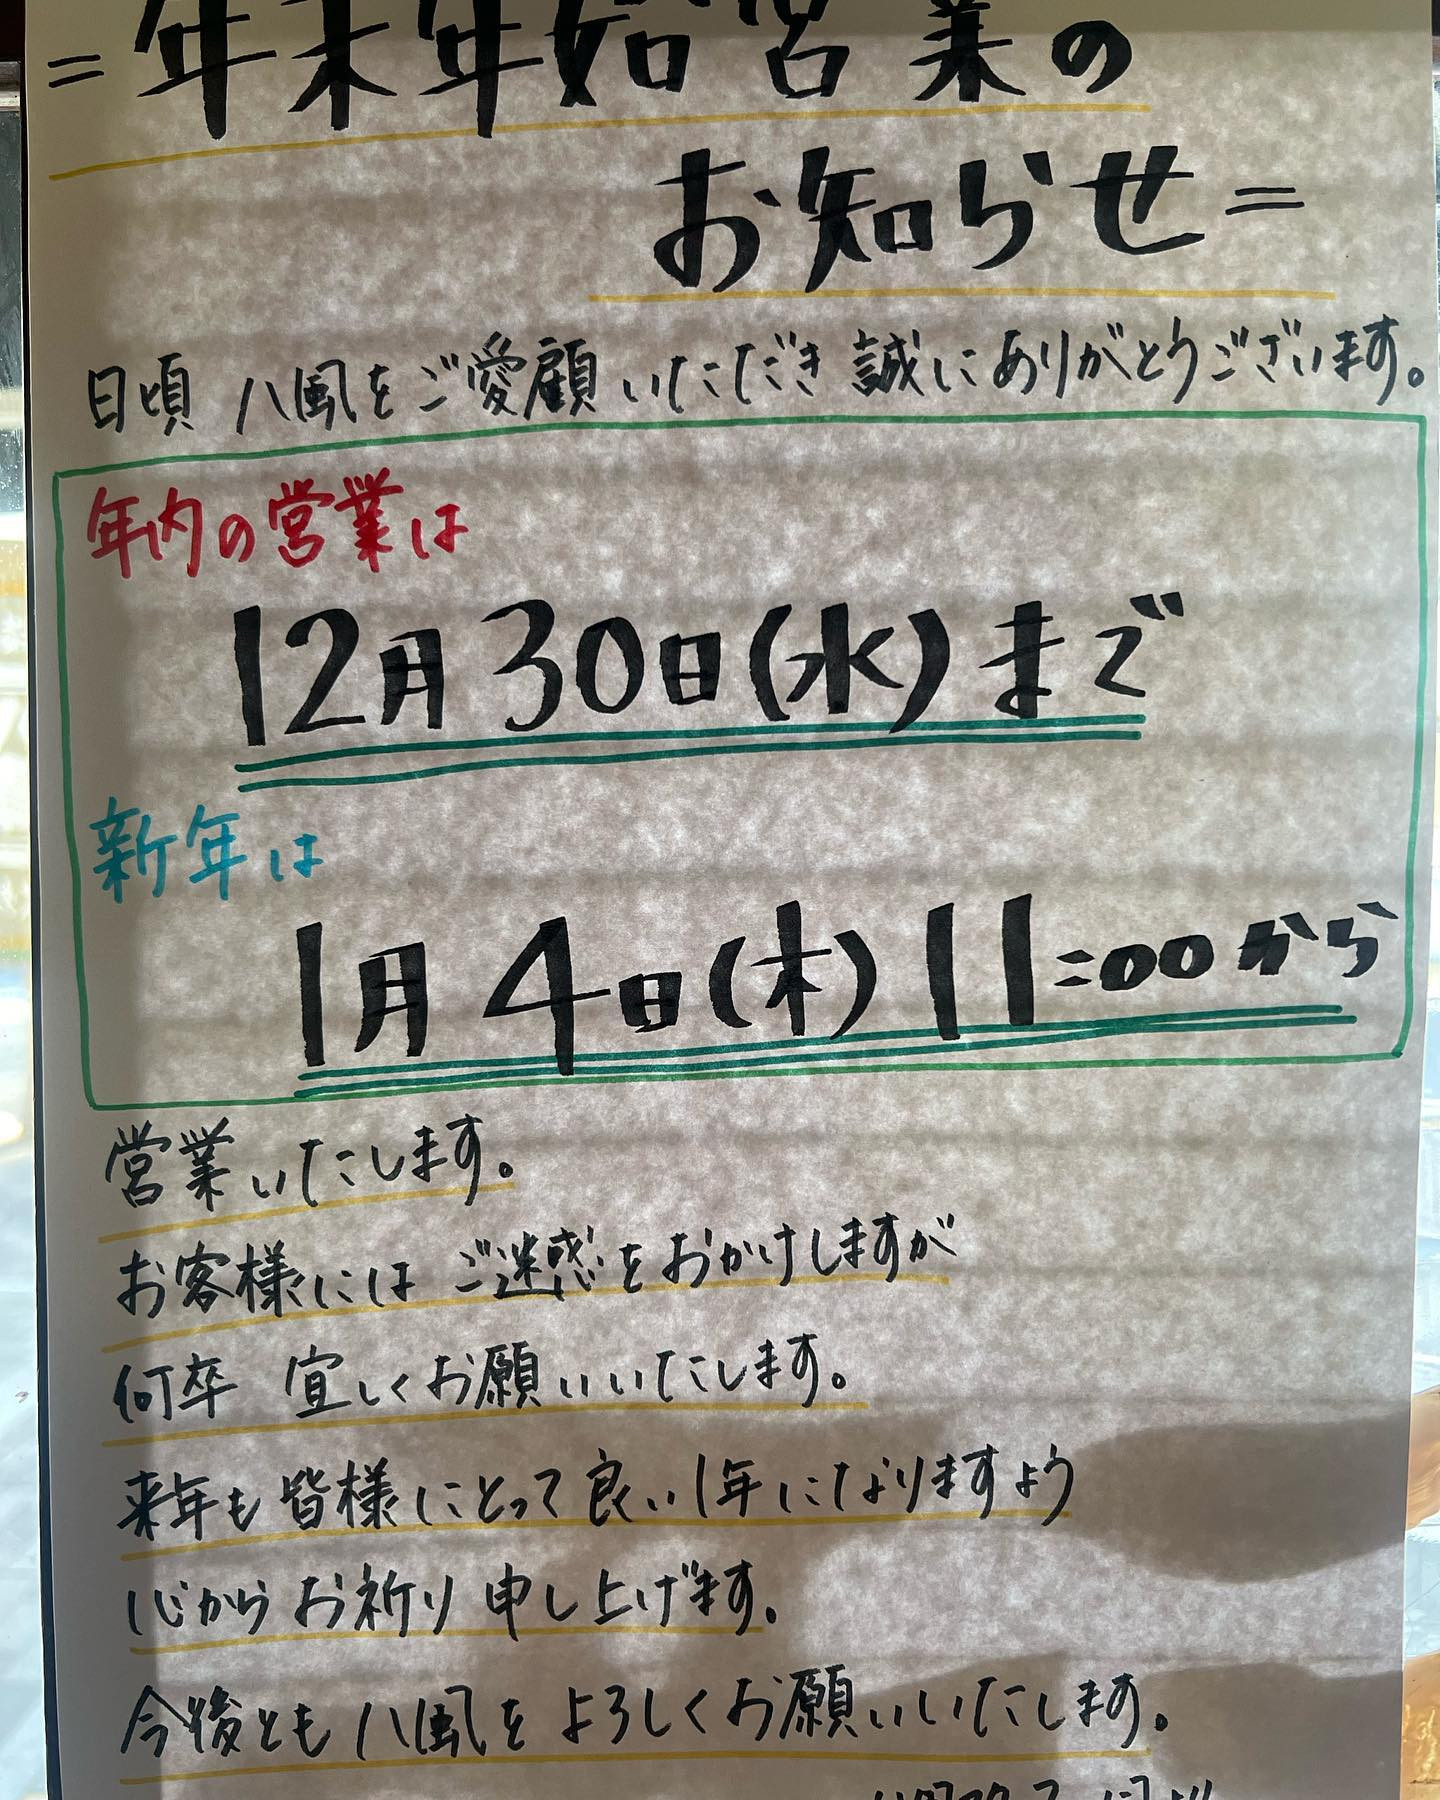 =年末年始営業の
お知らせ=
日頃 八風をご愛顧いただき 誠にありがとうございます。
年内の営業は
12月30日(水)まで
新年は
1月4日(木)11:00から
営業いたします。
お客様には ご迷惑をおかけしますが
何卒 宜しくお願いいたします。
来年も皆様にとって良い1年になりますよう
心からお祈り申し上げます。
今後とも八風をよろしくお願いいたします。